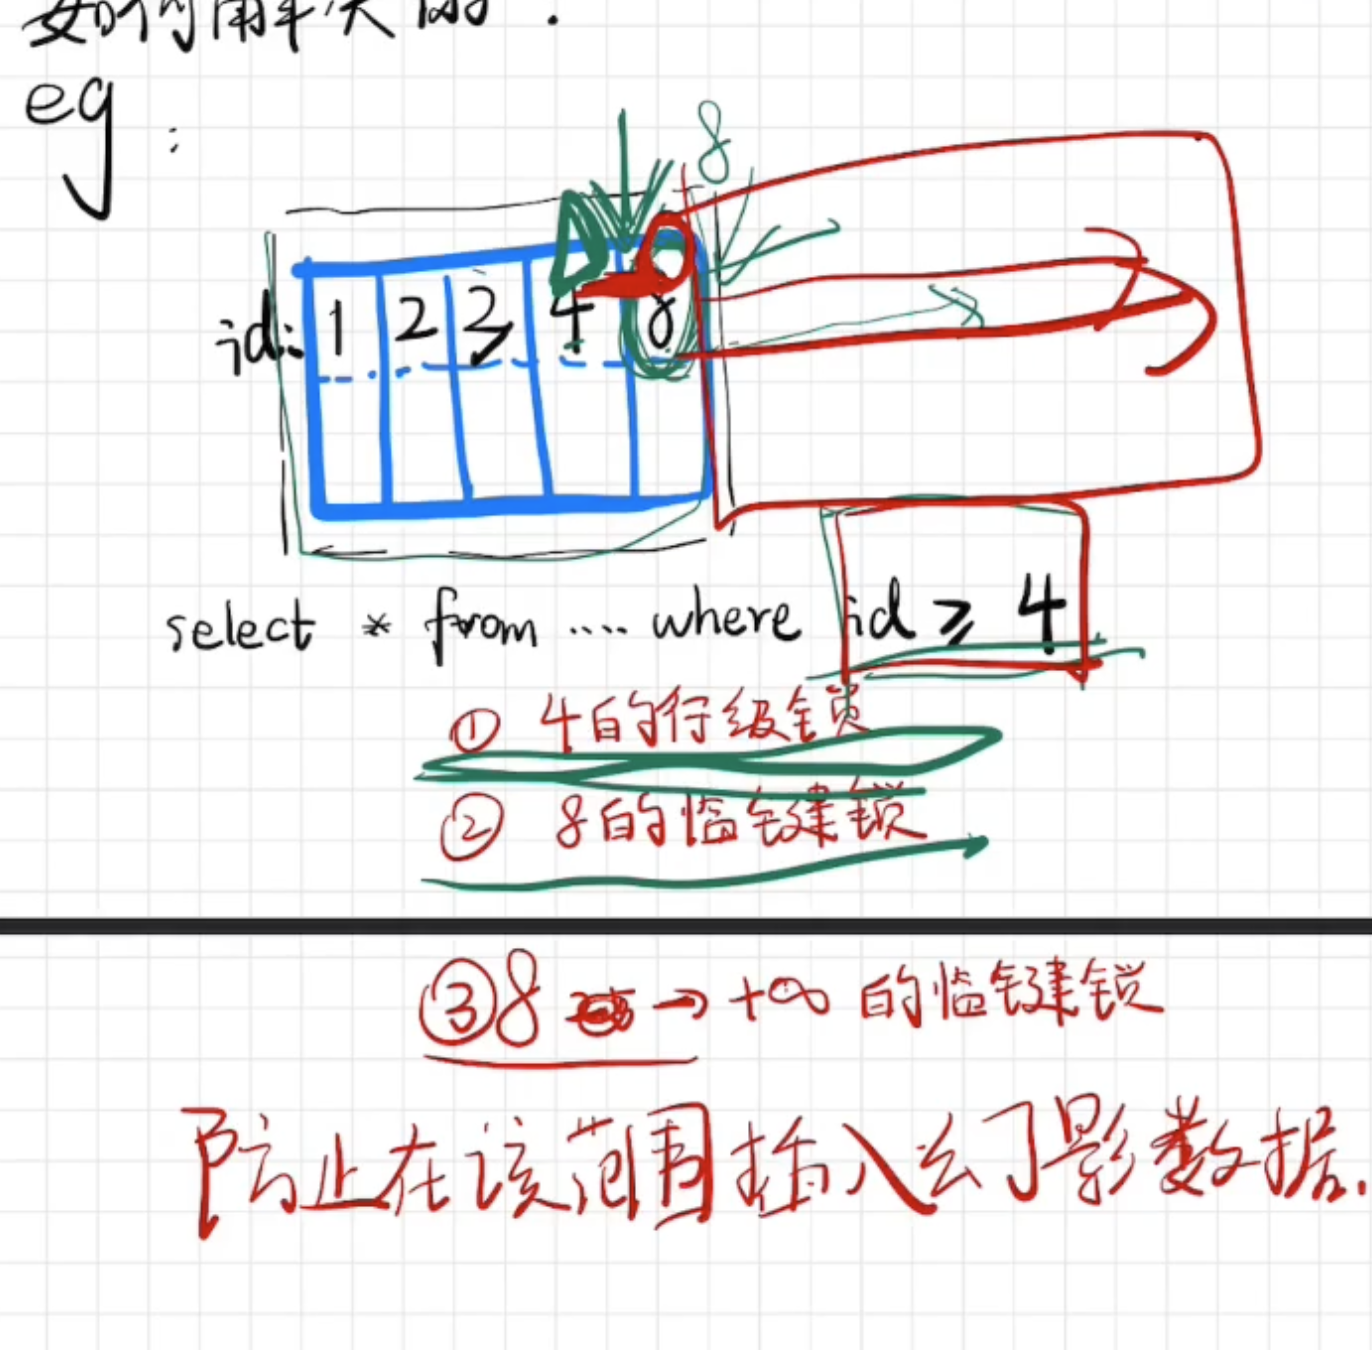 如何解决的?
eg:
8
id: 1 2 3 4 8
select * from .... where id ≥ 4
① 4的行级锁
② 8的临键锁
③ 8 → +∞ 的临键锁
防止在该范围插入幻影数据.